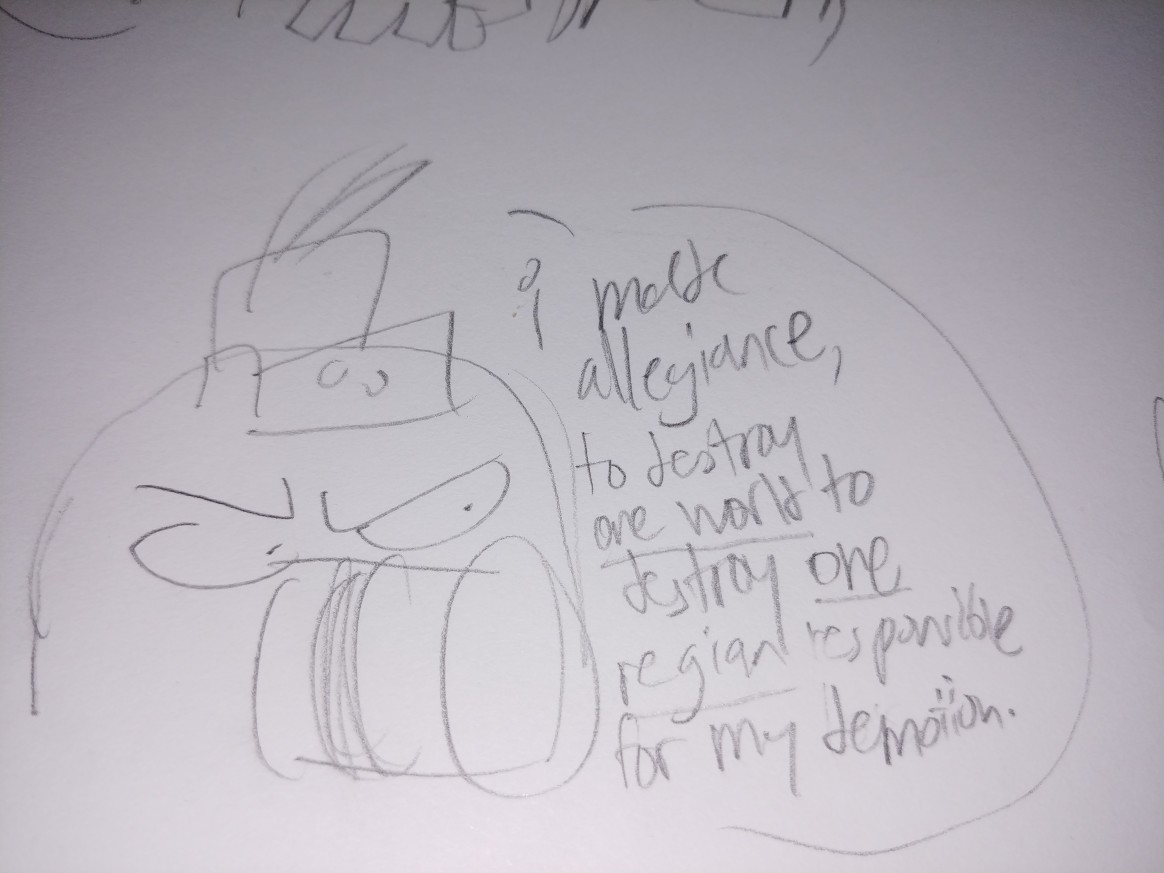 i made
allegiance,
to destroy
one world to
destroy one
region responsible
for my demotion.